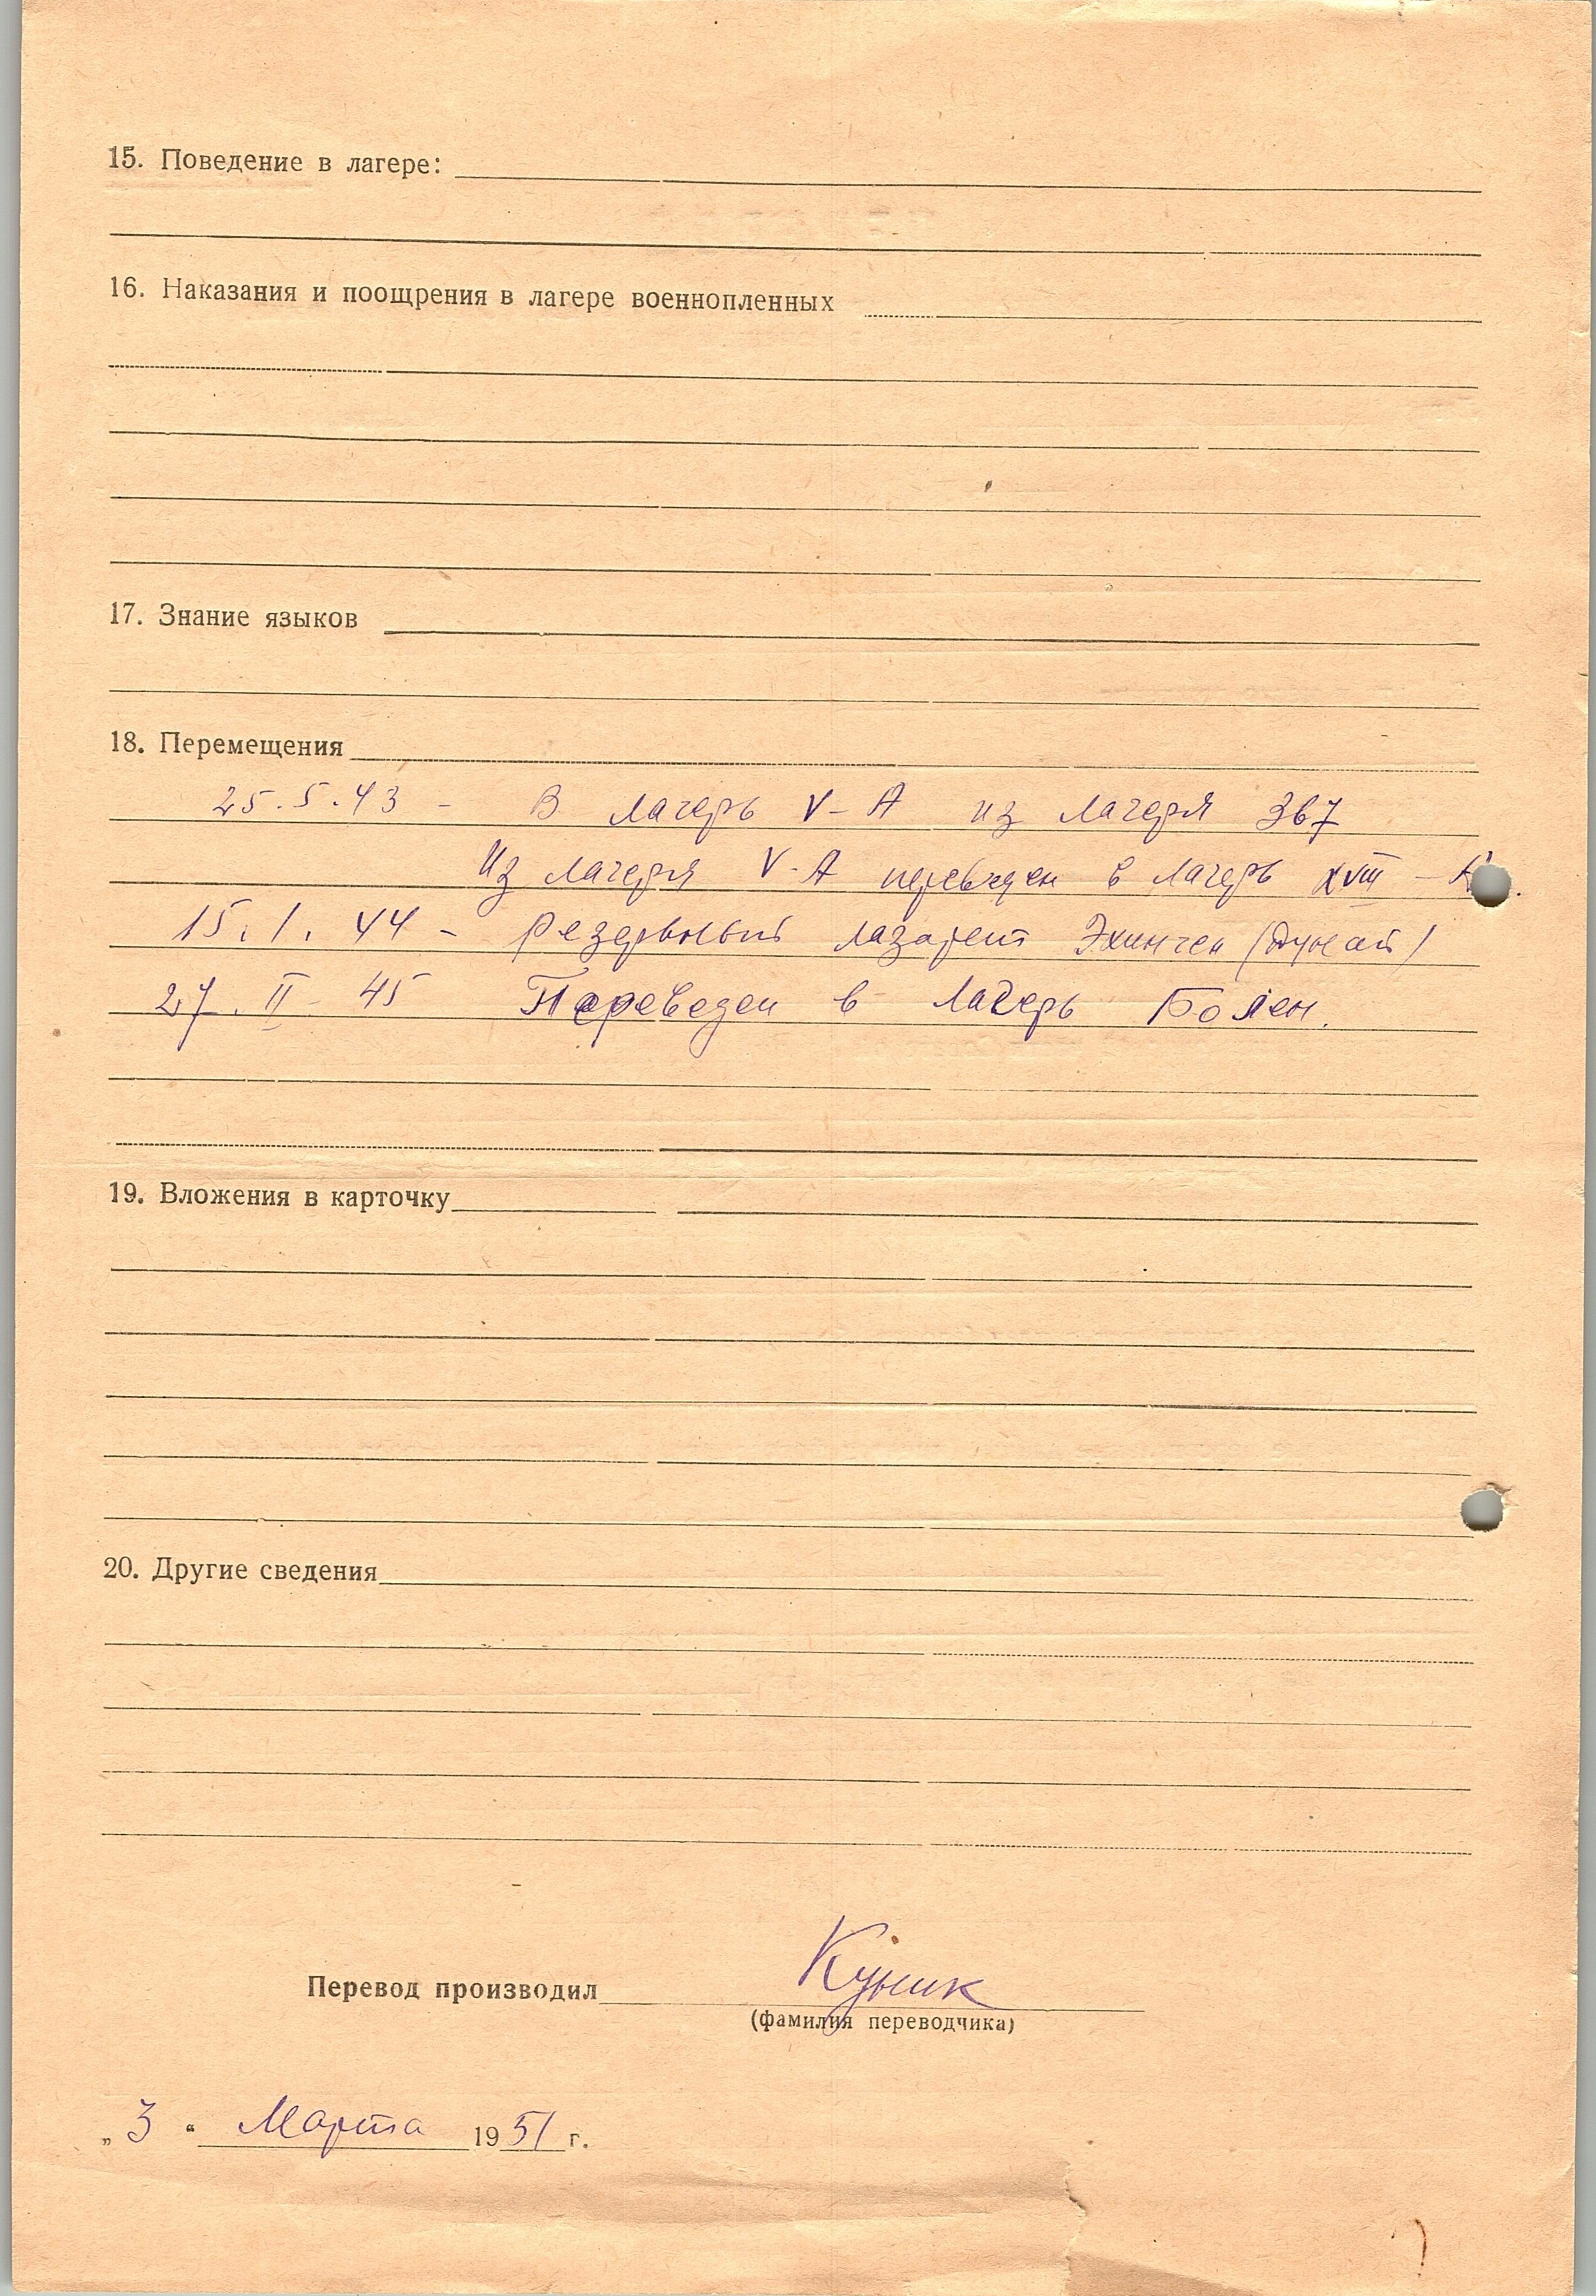 15. Поведение в лагере:
16. Наказания и поощрения в лагере военнопленных
17. Знание языков
18. Перемещения
25.5.43 - В лагерь V-A из лагеря 367
Из лагеря V-A переведен в лагерь XVIII -
15.1.44 - Резервный лазарет Эхинген (Дунай)
27.II-45 Переведен в лагерь
19. Вложения в карточку
20. Другие сведения
Перевод производил Куник
(фамилия переводчика)
„3“ Марта 1951 г.